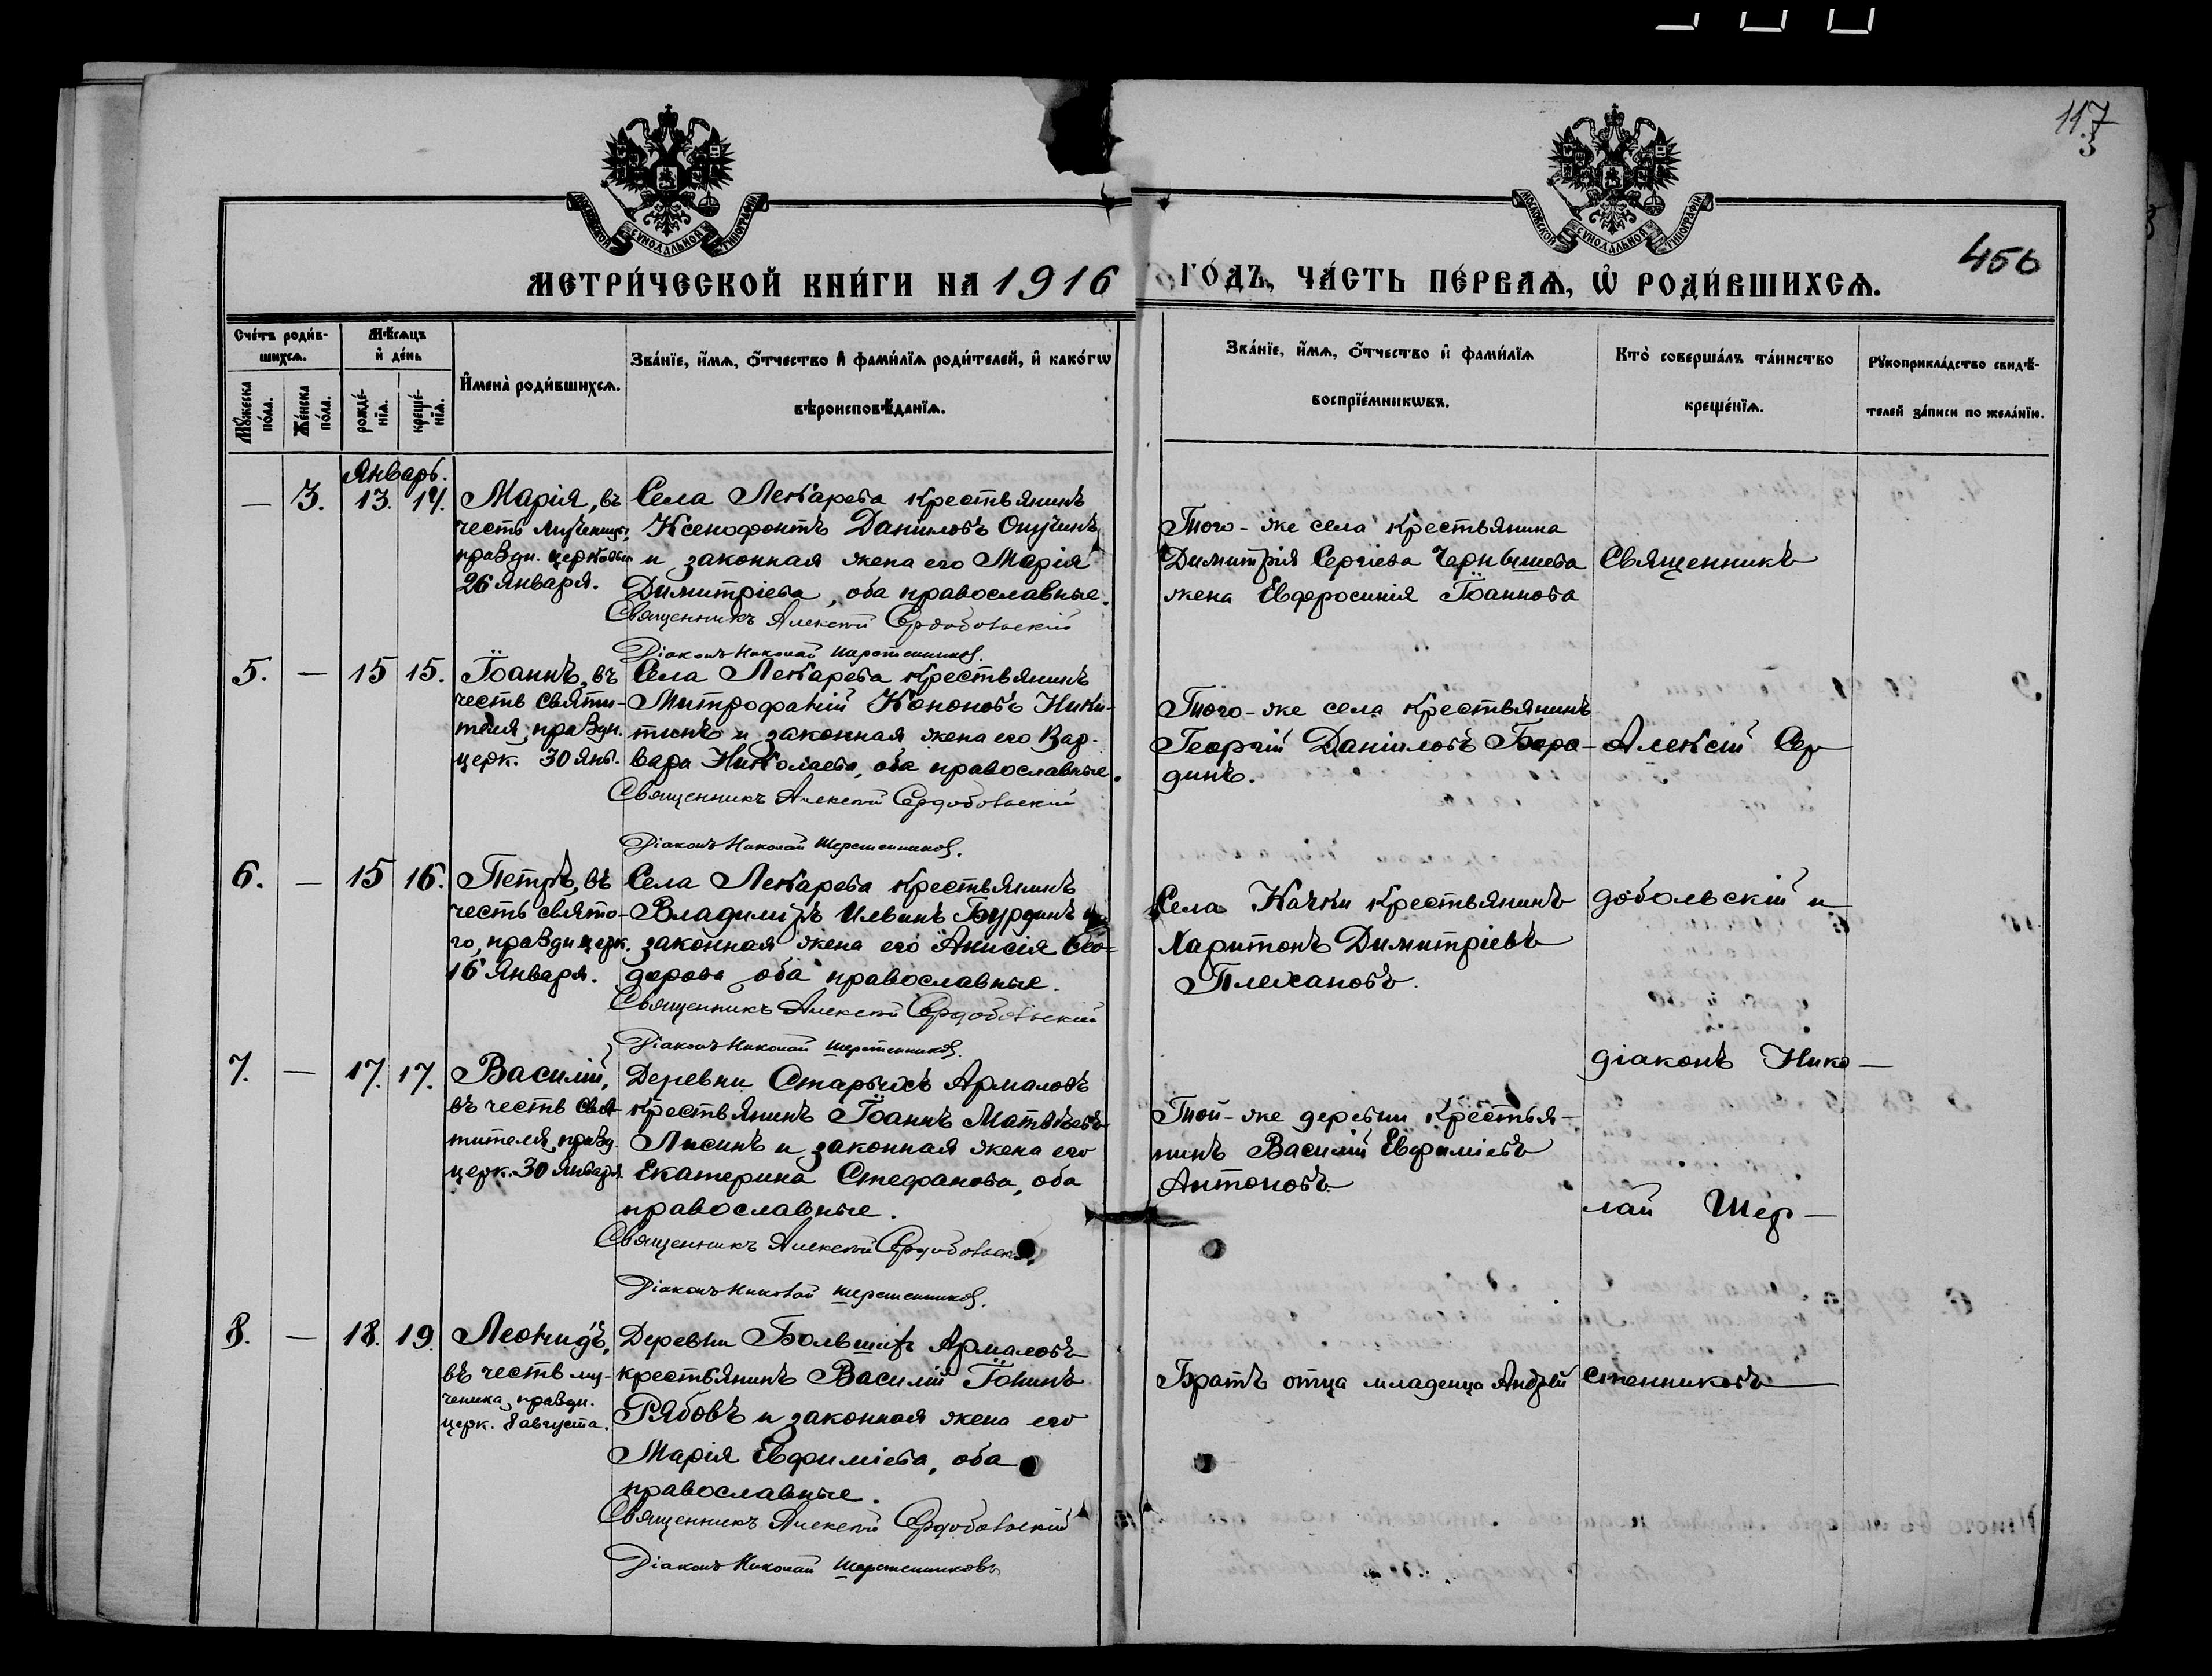 117
3
МОСКОВСКОЙ СУНОДАЛЬНОЙ ТИПОГРАФІИ
МОСКОВСКОЙ СУНОДАЛЬНОЙ ТИПОГРАФІИ
456
МЕТРИ́ЧЕСКОЙ КНИ́ГИ НА 1916 ГО́ДЪ, ЧА́СТЬ ПЕ́РВАѦ, Ѽ РОДИ́ВШИХСѦ.
Сче́тъ роди́в-
шихсѧ.
Мѣ́сѧцъ
и҆ де́нь
Мꙋ́жеска по́ла.
Же́нска по́ла.
рожде́-
нїѧ.
креще́-
нїѧ.
И҆мена̀ роди́вшихсѧ.
Зва́нїе, и҆́мѧ, ѻ҆́тчество и҆ фами́лїѧ роди́телей, и҆ како́гѡ
вѣроисповѣ́данїѧ.
Зва́нїе, и҆́мѧ, ѻ҆́тчество и҆ фами́лїѧ
воспрїе́мникѡвъ.
Кто̀ соверша́лъ та́инство
креще́нїѧ.
Рꙋкоприкла́дство свидѣ́-
телей за́писи по жела́нїю.
Январь.
— 3. 13. 14.
Марія, въ
честь мученицы,
праздн. церковью
26 Января.
Села Лекарева крестьянинъ
Ксенофонтъ Даниловъ
и законная жена его Марія
Димитріева, оба православные.
Священникъ Алексій Сердобольскій
Діаконъ Николай Шерстенниковъ.
Того-же села крестьянина
Димитрія Сергіева Чернышева
жена Евфросинія Іоаннова
Священникъ
5. — 15 15.
Іоаннъ, въ
честь святи-
теля, праздн.
церк. 30 Янв.
Села Лекарева крестьянинъ
Митрофаній Кононовъ Ники-
тинъ и законная жена его Вар-
вара Николаева, оба православные.
Священникъ Алексій Сердобольскій
Діаконъ Николай Шерстенниковъ.
Того-же села крестьянинъ
Георгій Даніиловъ Боро-
динъ.
Алексій Сер
6. — 15 16.
Петръ, въ
честь свято-
го, праздн церк.
16 Января.
Села Лекарева крестьянинъ
Владиміръ Ильинъ Бурдинъ и
законная жена его Анисія Ѳео-
дорова оба православные.
Священникъ Алексій Сердобольскій
Діаконъ Николай Шерстенниковъ.
Села Качки крестьянинъ
Харитонъ Димитріевъ
Плехановъ.
добольскій и
7. — 17. 17.
Василій,
въ честь свя-
тителя, празд.
церк. 30 Января
Деревни Старыхъ Армаловъ
крестьянинъ Іоаннъ Матвѣевъ
Лисинъ и законная жена его
Екатерина Стефанова, оба
православные.
Священникъ Алексій Сердобольскій
Діаконъ Николай Шерстенниковъ.
діаконъ Нико—
Той-же деревни крестья-
нинъ Василій Евфиміевъ
Антоновъ.
лай Шер—
8. — 18. 19.
Леонидъ,
въ честь му-
ченика, праздн.
церк. 8 августа.
Деревни Большихъ Армаловъ
крестьянинъ Василій Іонинъ
Рябовъ и законная жена его
Марія Евфиміева, оба
православные.
Священникъ Алексій Сердобольскій
Діаконъ Николай Шерстенниковъ
Братъ отца младенца Андрей
стенниковъ